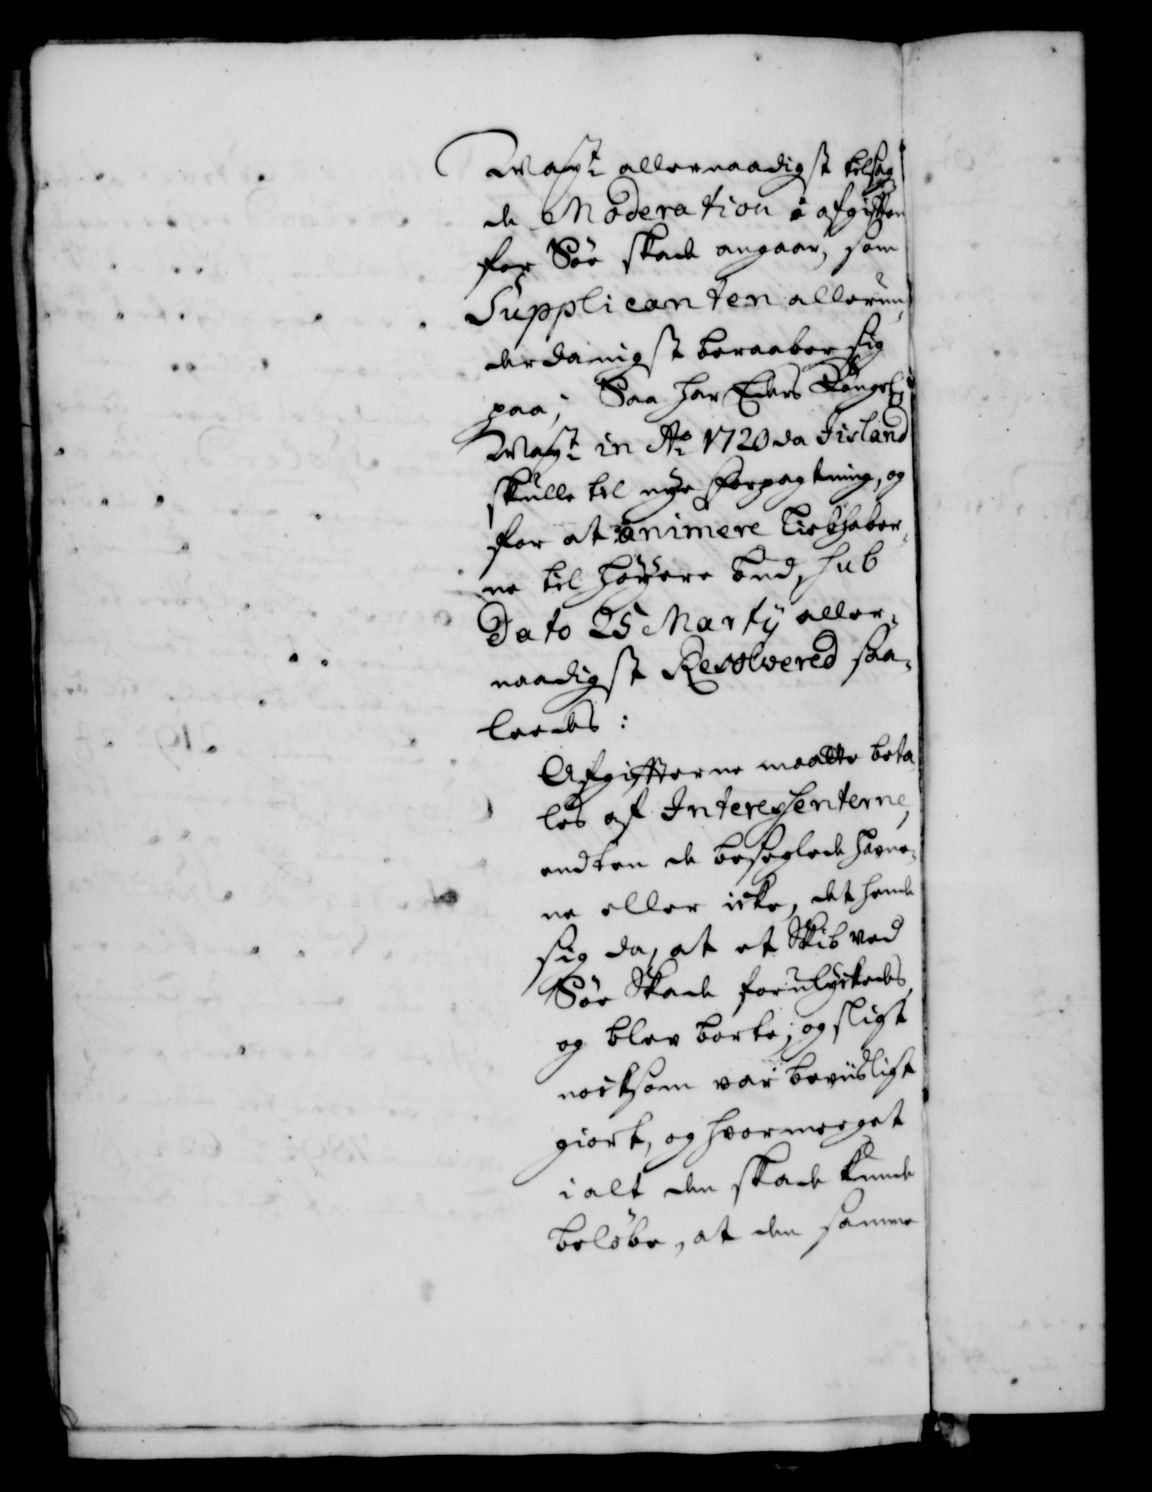 Mayt allernaadigst tilsag
de Moderation i afgiften
for Söe skade angaar, som
Supplicanten allerun,
derdanigst beraaber sig
paa; Saa har Eders Kongel:
Mayt in Ao 1720 da Iisland
skulle til nye forpagtning, og
for at animere Liebhaber,
ne til höyere bud, sub
Dato 25 Martij aller,
naadigst Resolvered saa,
leedes:
Afgifterne maatte beta
les af Interessenterne,
endten de beseglede havne,
ne eller icke, det hende
sig da, at et Skib ved
Söe Skade forulyckedes,
og blev borte; og sligt
nocksom var beviisligt
giort, og hvormeget
i alt den skade kunde
belöbe, at den samme